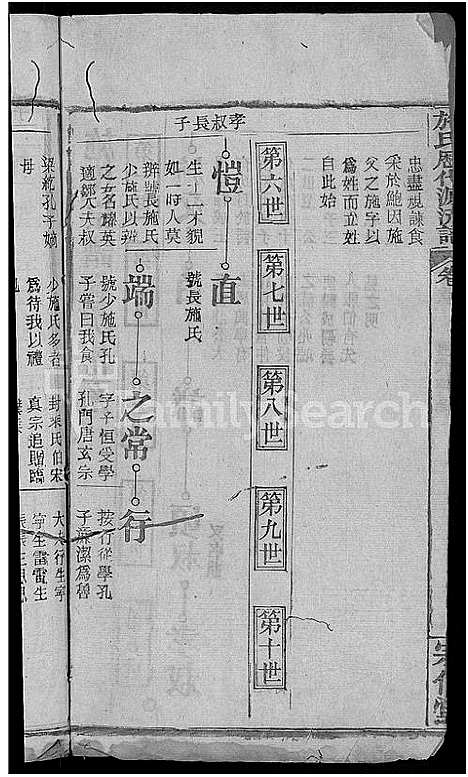 施氏歷代源流記
卷
忠盡規諫食
采於鮑因施
父之施字以
爲姓而立姓
自此始
第六世
第七世
第八世
第九世
第十世
孝叔長子
愷
生二才貌
如一時人莫
辨號長施氏
少施氏以辨
之女名
適鄒大夫叔
梁紇孔子嫡
母
直
號長施氏
端
號少施氏孔
子嘗曰我食
少施氏多者
爲待我以禮
之常
字子恒受學
孔門唐玄宗
封乘氏伯宋
真宗追贈臨
行
按行從學孔
子廉潔爲魯
大夫行生寜
寜生雷雷生
FamilySearch